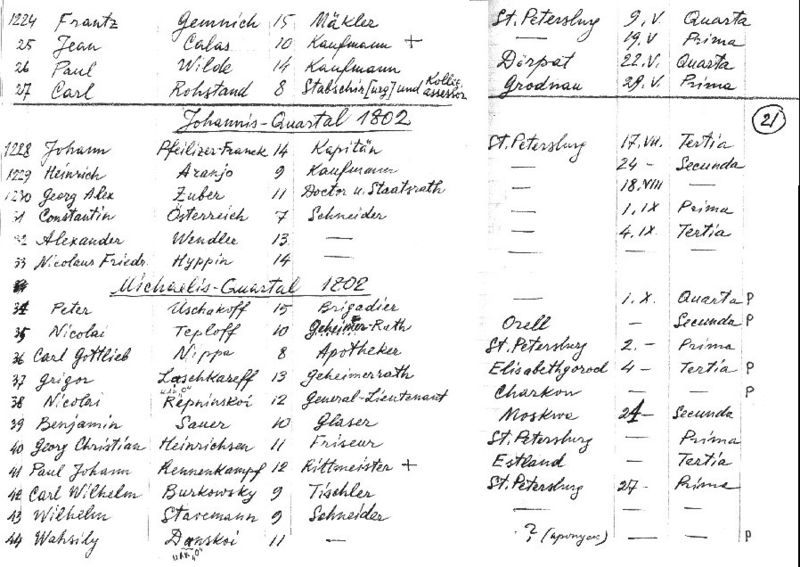 1224 Frantz Gemnich 15 Mäkler St. Petersburg 9. V. Quarta
25 Jean Calas 10 Kaufmann + — 19. V Prima
26 Paul Wilde 14 Kaufmann Dörpat 22. V. Quarta
27 Carl Rohstand 8 Stabschir[urg] und Kolleg. assessor Grodnau 29. V. Prima
Johannis-Quartal 1802 21
1228 Johann Pfeilizer-Franck 14 Kapitän St. Petersburg 17. VII. Tertia
1229 Heinrich Aranjo 9 Kaufmann — 24 – Secunda
1230 Georg Alex Zuber 11 Doctor u. Staatsrath — 18. VIII —
31 Constantin Österreich 7 Schneider — 1. IX Prima
32 Alexander Wendler 13 — — 4. IX Tertia
33 Nicolaus Friedr. Hyppin 14 —
Michaelis-Quartal 1802
34 Peter Uschakoff 15 Brigadier — 1. X. Quarta P
35 Nicolai Teploff 10 Geheimer-Rath Orell — Secunda P
36 Carl Gottlieb Nippa 8 Apotheker St. Petersburg 2. – Prima
37 Grigor Laschkareff 13 Geheimerrath Elisabethgorod 4 – Tertia P
38 Nicolai Repninskoi 12 General-Lieutenant Charkow — — P
39 Benjamin Sauer 10 Glaser Moskwa 24 – Secunda
40 Georg Christian Heinrichsen 11 Friseur St. Petersburg — Prima
41 Paul Johann Rennenkampf 12 Rittmeister + Estland — Tertia
42 Carl Wilhelm Burkowsky 9 Tischler St. Petersburg 27 – Prima
43 Wilhelm Stavemann 9 Schneider — — —
44 Wahsily Danskoi 11 — ? — — P